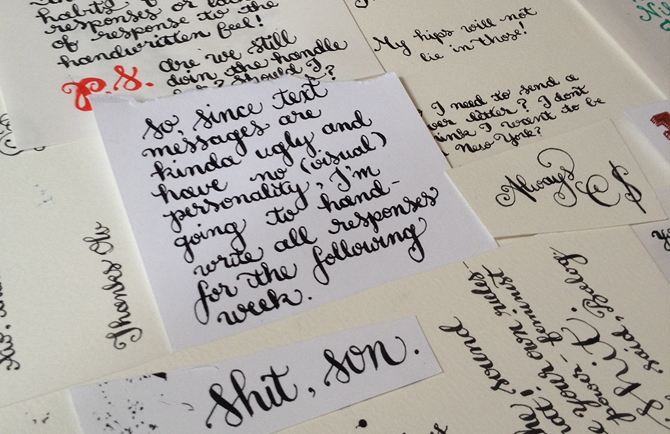 habits of
responses or la
of response to the
handwritten feel!
P.S. are we still
doin the handle
? Should I
So, since text
messages are
kinda ugly and
have no (visual)
personality, I'm
going to hand-
write all responses
for the following
week.
My hips will not
lie in those!
I need to send a
letter? I don't
I want to be
New York?
Always
C $
Thanks
Shit, son.
sound
your own rules
power-feminist
Shit.
said, Baby